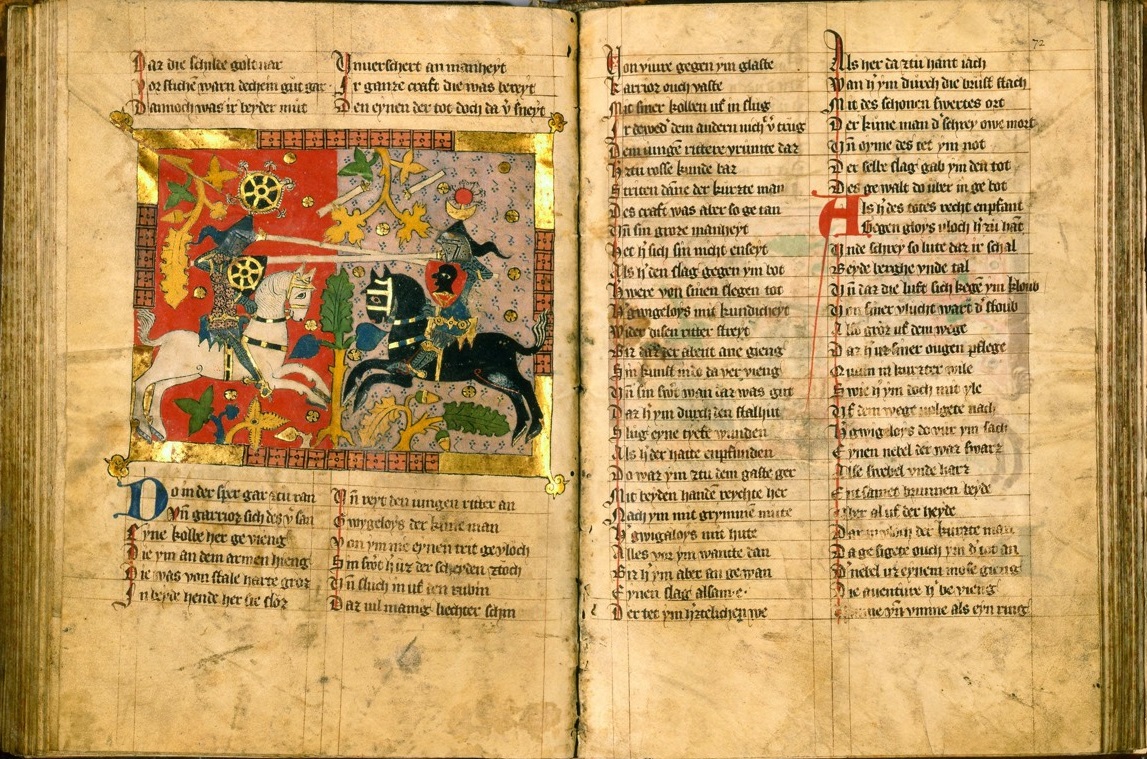 Daz die schilde golt uar
Vor stiche warn dechem gut gar
Dannoch was ir beyder mut
Vnuerschert an manheyt
Ir ganze craft die was bereyt
Den eynen der tot doch da v sneyt
Do in der sper gar zcu ran
Vn garrioz sich des san
Eyne kolbe her ge vieng
Die ym an dem armen hieng
Die was von stale harte groz
In beyde hende her sie sloz
Vn reyt den iungen ritter an
Gwygeloys der kune man
Von ym nie eynen trit ge vloch
Sin swt h uz der scheyden ztoch
Vn sluch in uf den rubin
Daz uil manig liechter schin
72
Von viure gegen ym glaste
Karrioz ouch vaste
Mit siner kolben uf in slug
Ir dewed dem andern nicht v trug
Dem iunge rittere vrumte daz
H ztu rosse kunde baz
Striten danne der kurzte man
Des craft was aber so ge tan
Vn sin groze manheyt
Het h sich sin nicht enseyt
Als h den slag gegen ym bot
H were von sinen slegen tot
H gwigeloys mit kundicheyt
Wider disen ritter streyt
Biz daz der abent ane gieng
Sin kunst da ver vieng
Vn sin swt wan iz was gut
Daz h ym durch den stalhut
Slug eyne tyefe wunden
Als h der hatte enpfunden
Do waz ym ztu dem gaste ger
Mit beyden hande reychte her
Nach ym mit grymme mute
H gwigaloys mit hute
Alles vor ym wancte dan
Biz h ym aber an ge wan
Eynen slag alsam e
Der tet ym hertelichen we
Als her da ztu hant iach
Wan h ym durch die brust stach
Mit des schonen swertes ort
Der kune man d schrey owe mort
Vn oyme des tet ym not
Der selbe slag gab ym den tot
Des ge walt do uber in ge bot
Als h des totes recht enpfant
Gegen gloys vloch h zu hat
Vnde schrey so lute daz ir schal
Beyde berghe vnde tal
Vn daz die luft sich kege ym kloub
Von siner vlucht wart d stoub
Also groz uf dem wege
Daz h uz siner ougen pflege
Quam in kurzter wile
Swie h ym doch mit yle
Vf dem wege uolgete nach
H gwigeloys do vur ym sach
Eynen nebel der waz swarz
Alse swebel vnde harz
beyde
uf der heyde
der kurzte man
Da ge sigete ouch ym d tot an
D nebel uz eynem mose gieng
Die auentiure h be vieng
vn vmme als eyn ring